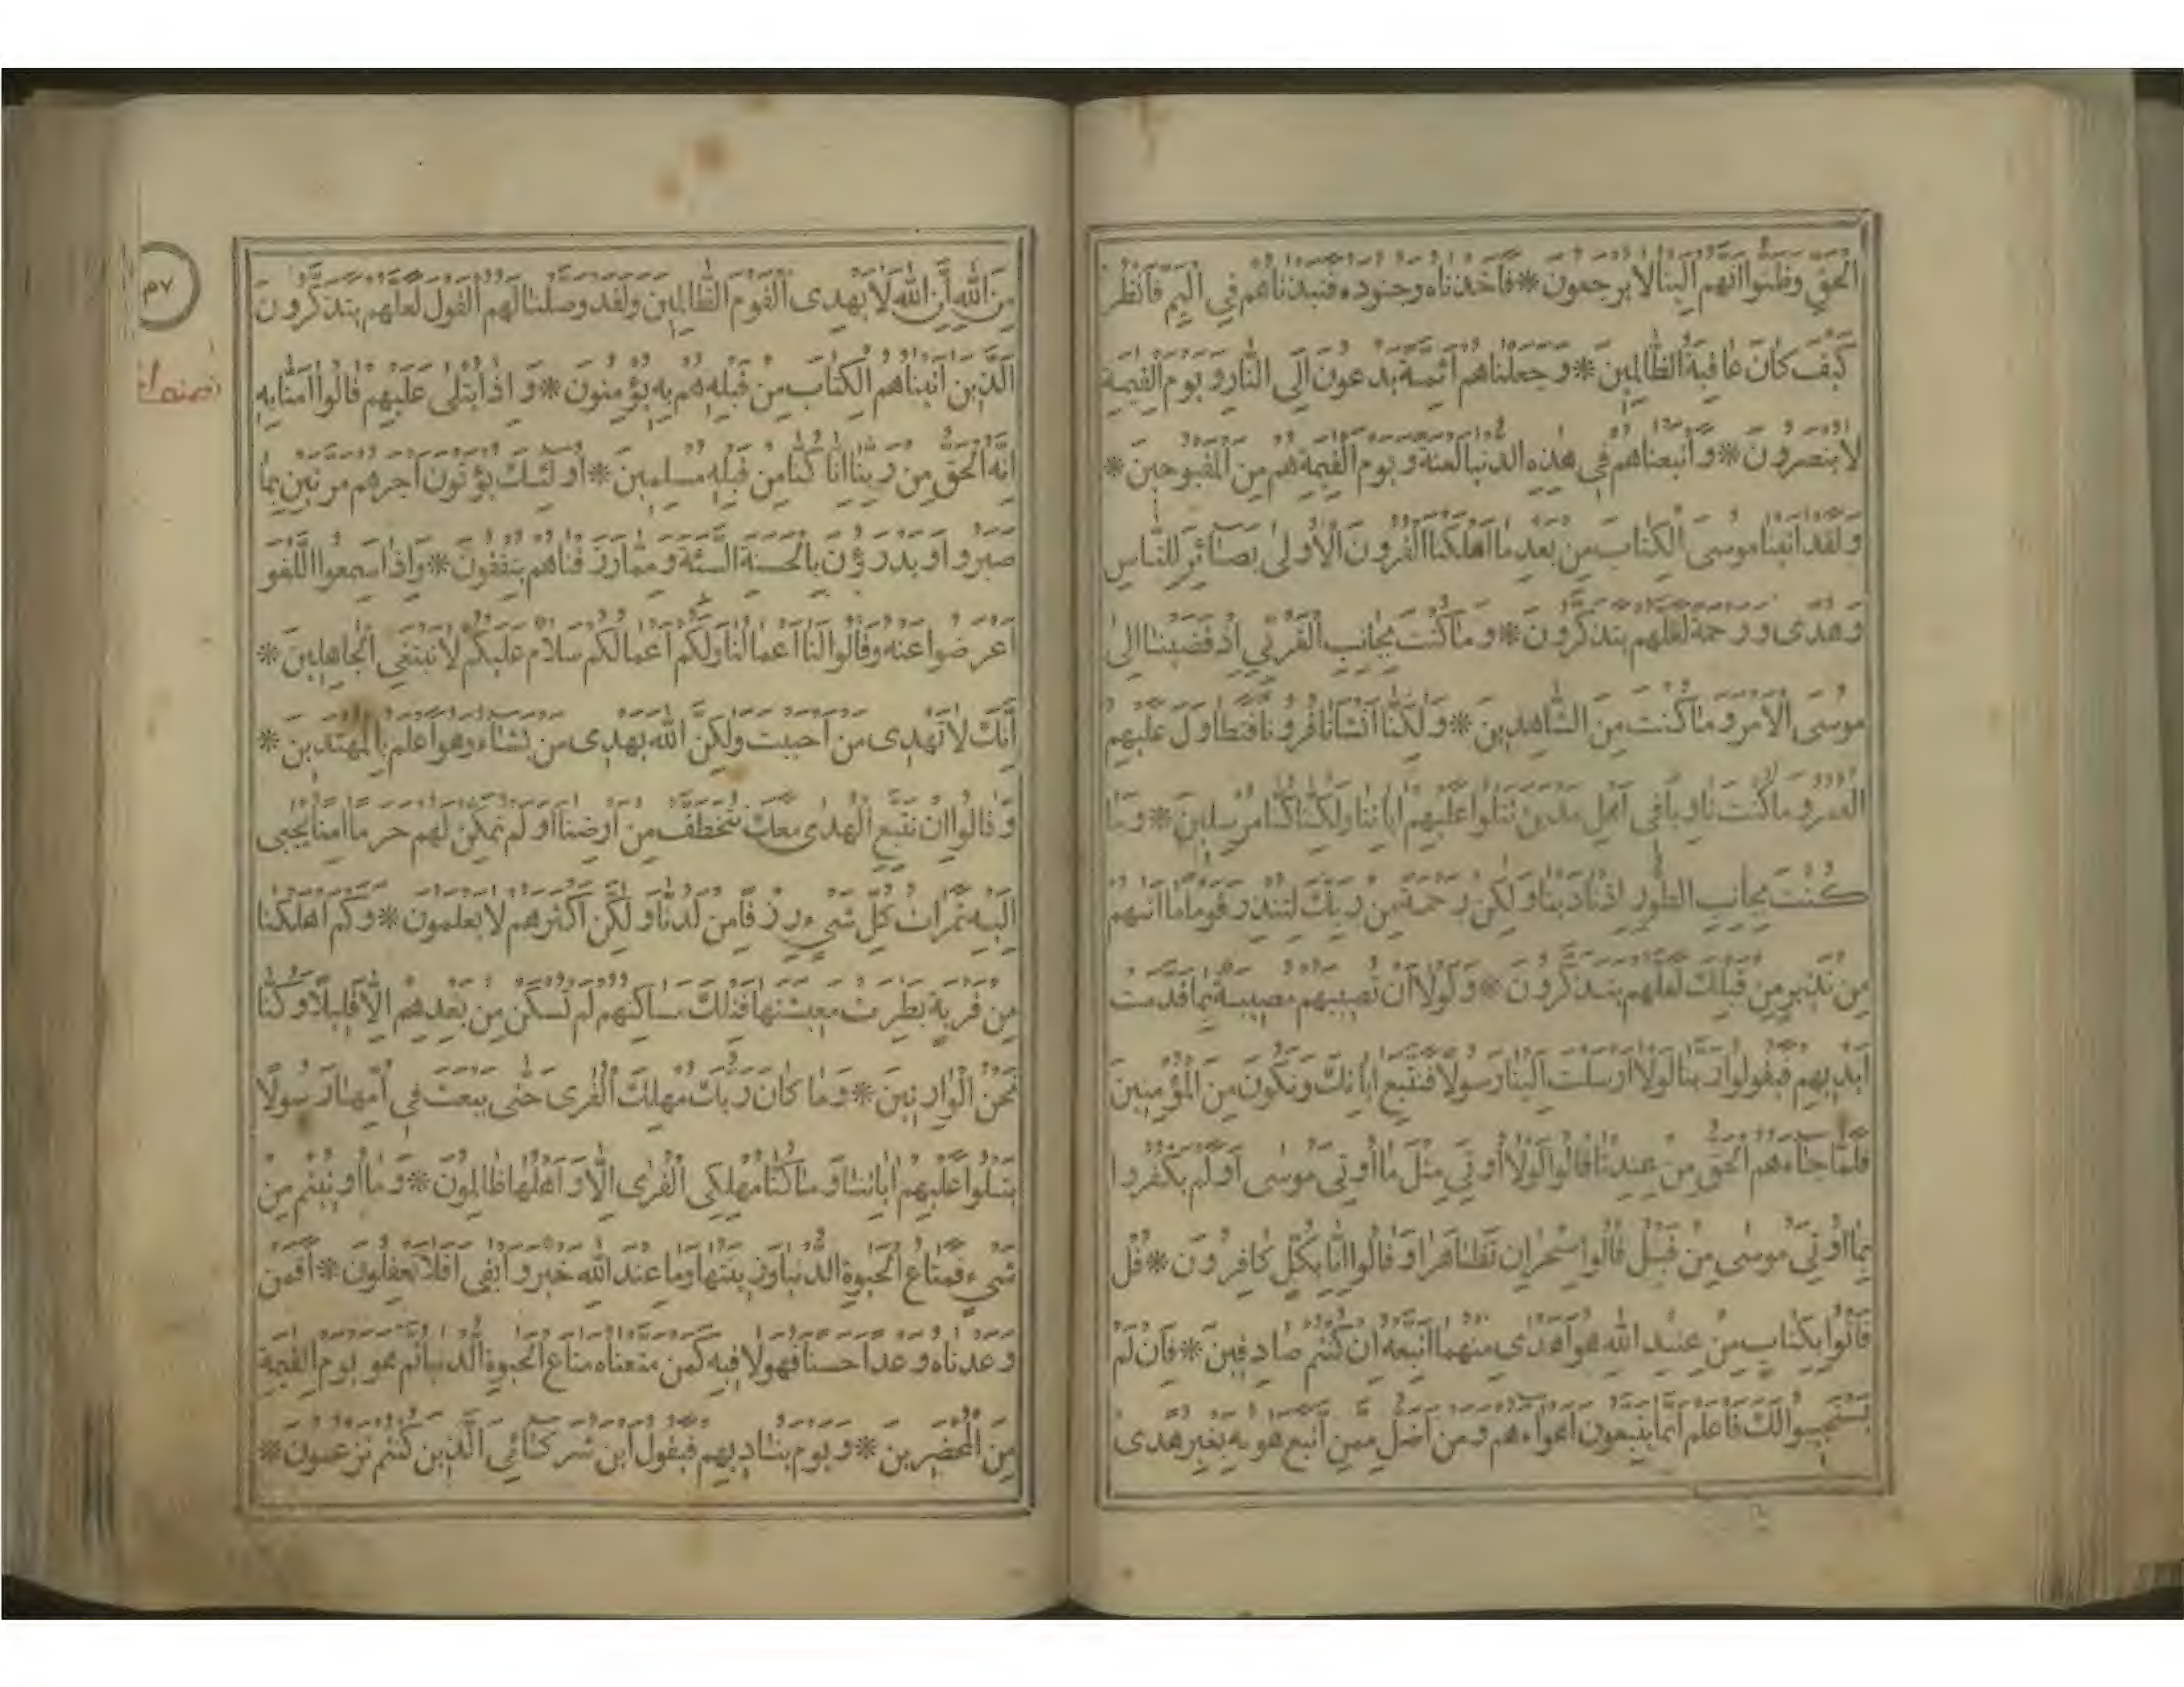 الحق وظنوا انهم الينا لا يرجعون * فاخذناه وجنوده فنبذناهم في اليم فانظر
كيف كان عاقبة الظالمين * وجعلناهم ائمة يدعون الى النار ويوم القيمة
لا ينصرون * واتبعناهم في هذه الدنيا لعنة ويوم القيمة هم من المقبوحين *
ولقد اتينا موسى الكتاب من بعد ما اهلكنا القرون الاولى بصائر للناس
وهدى ورحمة لعلهم يتذكرون * وما كنت بجانب الغربي اذ قضينا الى
موسى الامر وما كنت من الشاهدين * ولكنا انشانا قرونا فتطاول عليهم
العمر وما كنت ثاويا في اهل مدين تتلوا عليهم اياتنا ولكنا كنا مرسلين * وما
كنت بجانب الطور اذ نادينا ولكن رحمة من ربك لتنذر قوما ما اتيهم
من نذير من قبلك لعلهم يتذكرون * ولولا ان تصيبهم مصيبة بما قدمت
ايديهم فيقولوا ربنا لولا ارسلت الينا رسولا فنتبع اياتك ونكون من المؤمنين
فلما جاءهم الحق من عندنا قالوا لولا اوتي مثل ما اوتي موسى اولم يكفروا
بما اوتي موسى من قبل قالوا سحران تظاهرا وقالوا انا بكل كافرون * قل
فاتوا بكتاب من عند الله هو اهدى منهما اتبعه ان كنتم صادقين * فان لم
يستجيبوا لك فاعلم انما يتبعون اهواءهم ومن اضل ممن اتبع هويه بغير هدى
من الله ان الله لا يهدى القوم الظالمين ولقد وصلنا لهم القول لعلهم يتذكرون
الذين اتيناهم الكتاب من قبله هم به يؤمنون * واذا يتلى عليهم قالوا امنا به
انه الحق من ربنا انا كنا من قبله مسلمين * اولئك يؤتون اجرهم مرتين بما
صبروا ويدرؤن بالحسنة السيئة ومما رزقناهم ينفقون * واذا سمعوا اللغو
اعرضوا عنه وقالوا لنا اعمالنا ولكم اعمالكم سلام عليكم لا نبتغي الجاهلين *
انك لا تهدى من احببت ولكن الله يهدى من يشاء وهو اعلم بالمهتدين *
وقالوا ان نتبع الهدى معك نتخطف من ارضنا اولم نمكن لهم حرما امنا يجبى
اليه ثمرات كل شيء رزقا من لدنا ولكن اكثرهم لا يعلمون * وكم اهلكنا
من قرية بطرت معيشتها فتلك مساكنهم لم تسكن من بعدهم الا قليلا وكنا
نحن الوارثين * وما كان ربك مهلك القرى حتى يبعث في امها رسولا
يتلوا عليهم اياتنا وما كنا مهلكي القرى الا واهلها ظالمون * وما اوتيتم من
شيء فمتاع الحيوة الدنيا وزينتها وما عند الله خير وابقى افلا تعقلون * افمن
وعدناه وعدا حسنا فهو لاقيه كمن متعناه متاع الحيوة الدنيا ثم هو يوم القيمة
من المحضرين * ويوم يناديهم فيقول اين شركائي الذين كنتم تزعمون *